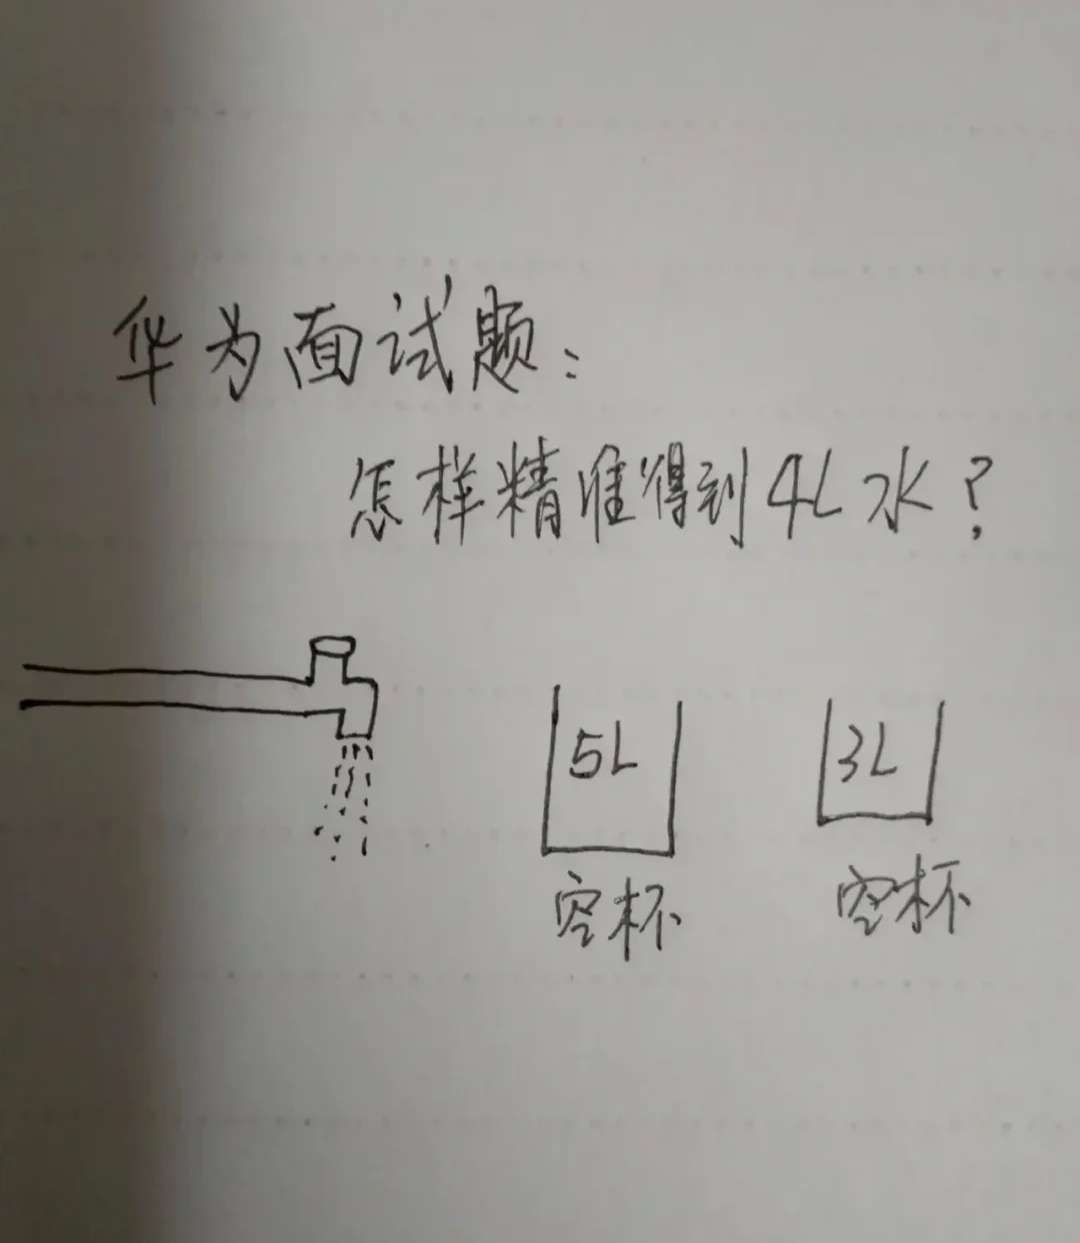 华为面试题：
怎样精准得到4L水？
5L 3L
空杯 空杯